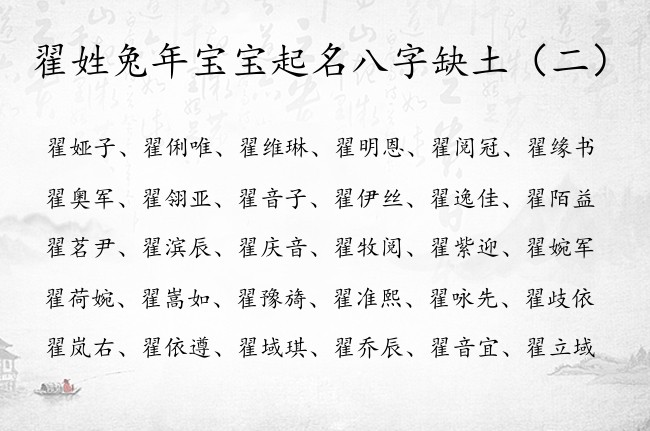 翟姓兔年宝宝起名八字缺土（二）
翟娅子、翟俐唯、翟维琳、翟明恩、翟阅冠、翟缘书
翟奥军、翟翎亚、翟音子、翟伊丝、翟逸佳、翟陌益
翟茗尹、翟滨辰、翟庆音、翟牧阅、翟紫迎、翟婉军
翟荷婉、翟嵩如、翟豫旖、翟准熙、翟咏先、翟歧依
翟岚右、翟依遵、翟域琪、翟乔辰、翟音宜、翟立域